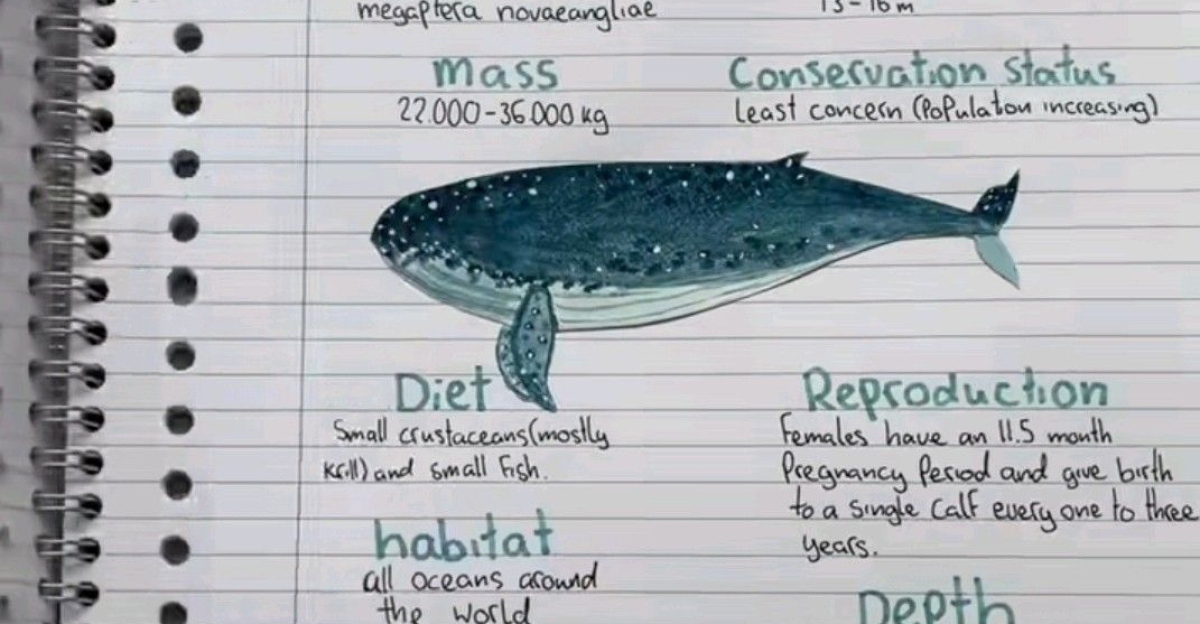 megaptera novaeangliae
13-16 m
mass
22.000-36.000 kg
Conservation status
Least concern (Populaton increasing)
Diet
Small crustaceans(mostly
Krill) and small Fish.
Reproduction
Females have an 11.5 month
Pregnancy Period and give birth
to a single Calf every one to three
years.
habitat
all oceans around
the world
Depth